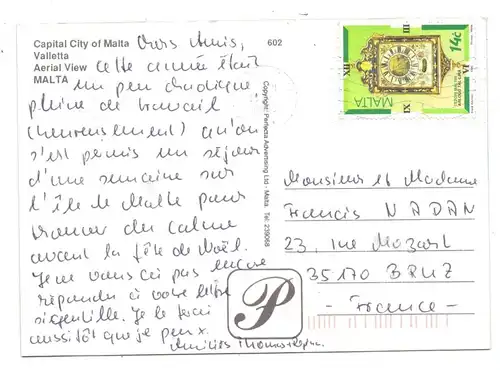 Capital City of Malta
Valletta
Aerial View
MALTA
602
Chers Amis,
cette année était
un peu chaotique
pleine de travail
(heureusement) qu'on
s'est permis un séjour
d'une semaine sur
l'île de Malte pour
trouver du calme
avant la fête de Noël.
Je ne vous ai pas encore
répondu à votre lettre
si gentille. Je le ferai
aussitôt que je peux.
Amitiés Thomas
Copyright: Perfecta Advertising Ltd. Malta Tel:
P
XII
III
14c
MALTA
XI
VI
Monsieur et Madame
Francis NADAN
23, rue Mozart
35170 BRUZ
- France -